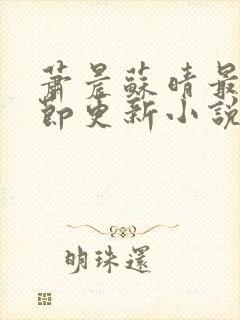 蕭晨蘇晴最
節更新小說
明珠還